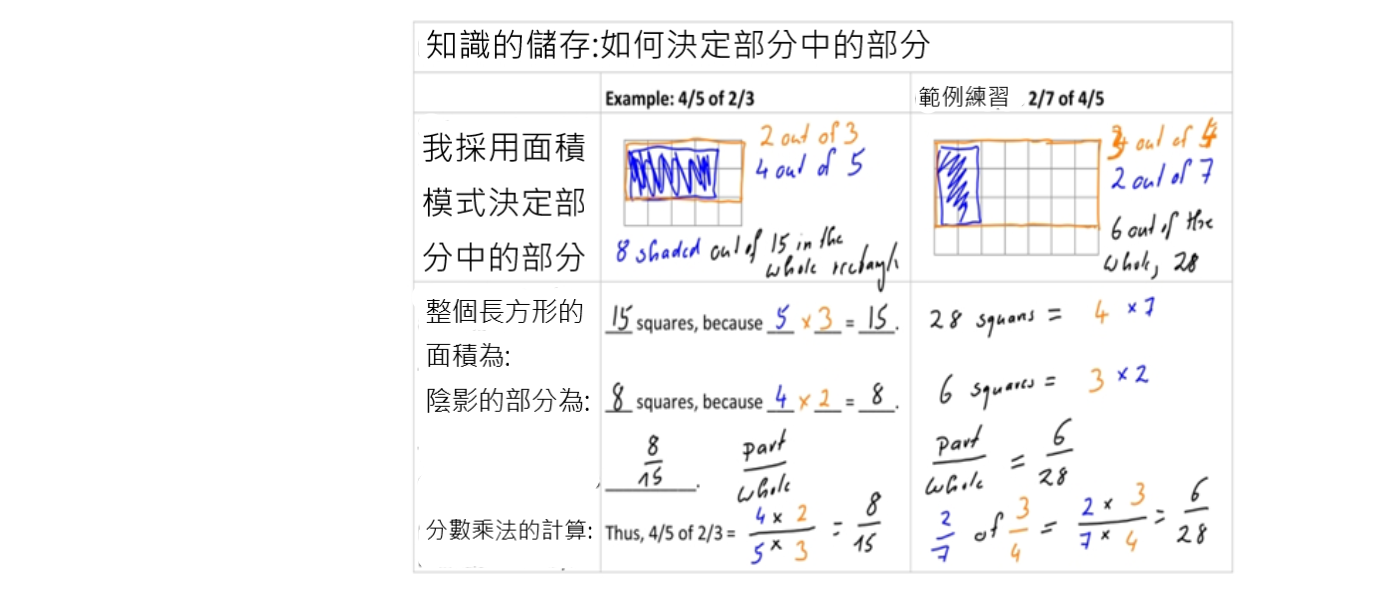 知識的儲存:如何決定部分中的部分
Example: 4/5 of 2/3
範例練習 2/7 of 4/5
我採用面積
模式決定部
分中的部分
2 out of 3
4 out of 5
8 shaded out of 15 in the
whole rectangle
3 out of 4
2 out of 7
6 out of the
whole, 28
整個長方形的
面積為:
15 squares, because 5 × 3 = 15.
28 squares = 4 × 7
陰影的部分為:
8 squares, because 4 × 2 = 8.
6 squares = 3 × 2
8/15. part/whole
part/whole = 6/28
分數乘法的計算:
Thus, 4/5 of 2/3 = 4 × 2 / 5 × 3 = 8/15
2/7 of 3/4 = 2 × 3 / 7 × 4 = 6/28